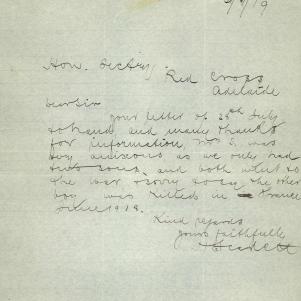 /8/19
Hon. Secty.
Red Cross
Adelaide
Dear Sir
your letter of 25th July
to hand, and many thanks
for information, Mrs S. was
very anxious as we only had
two sons, and both went to
the war sorry to say the other
boy was killed in France
June 1918.
Kind regards
yours faithfully